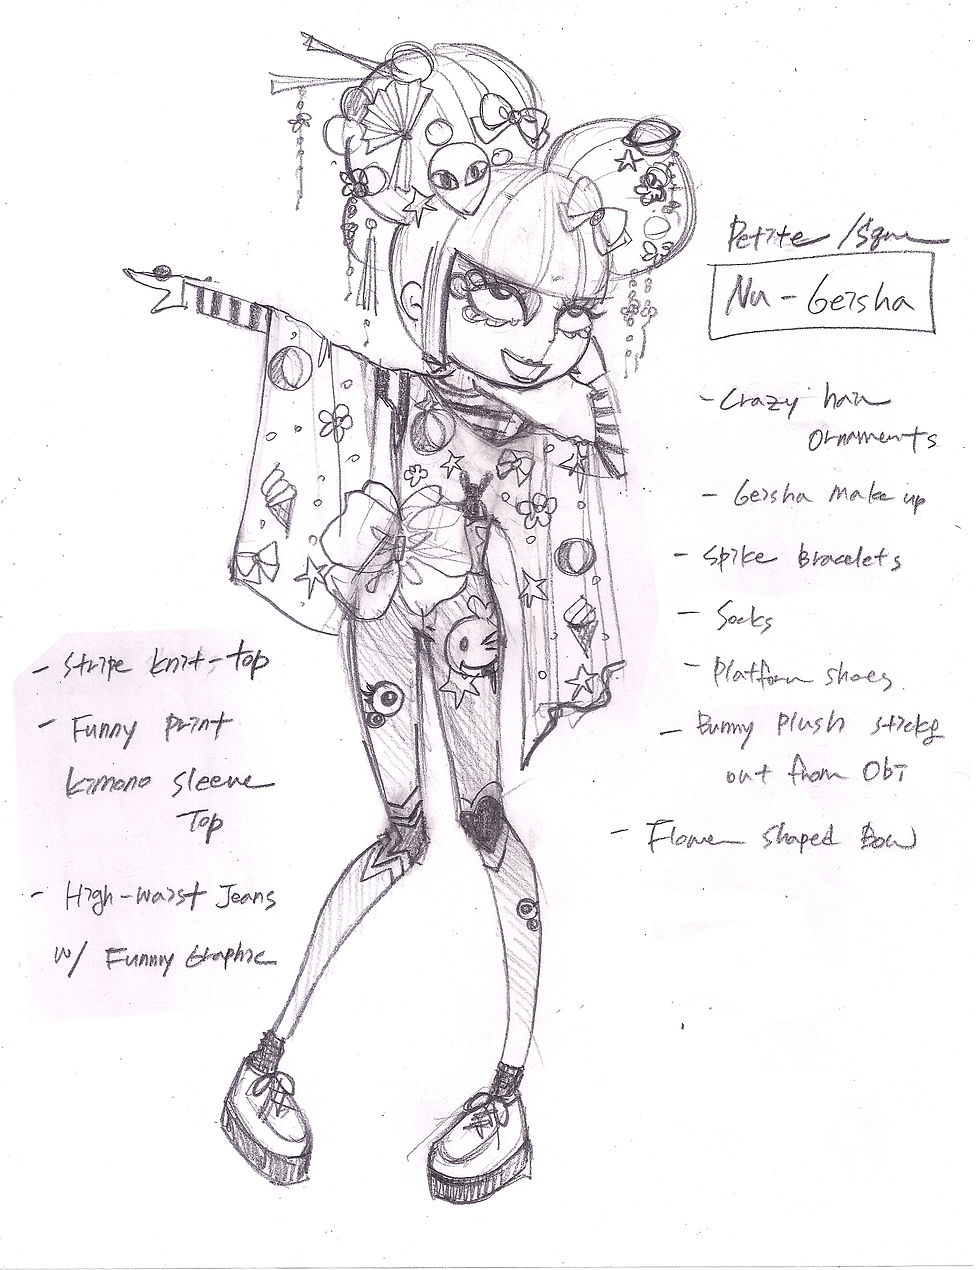 Petite /
Nu-Geisha
- Crazy hair
ornaments
- Geisha Make up
- Spike Bracelets
- Socks
- Platform shoes
- Bunny Plush sticks
out from Obi
- Flower shaped Bow
- Stripe knit-top
- Funny print
kimono sleeve
Top
- High-waist Jeans
w/ Funny Graphic